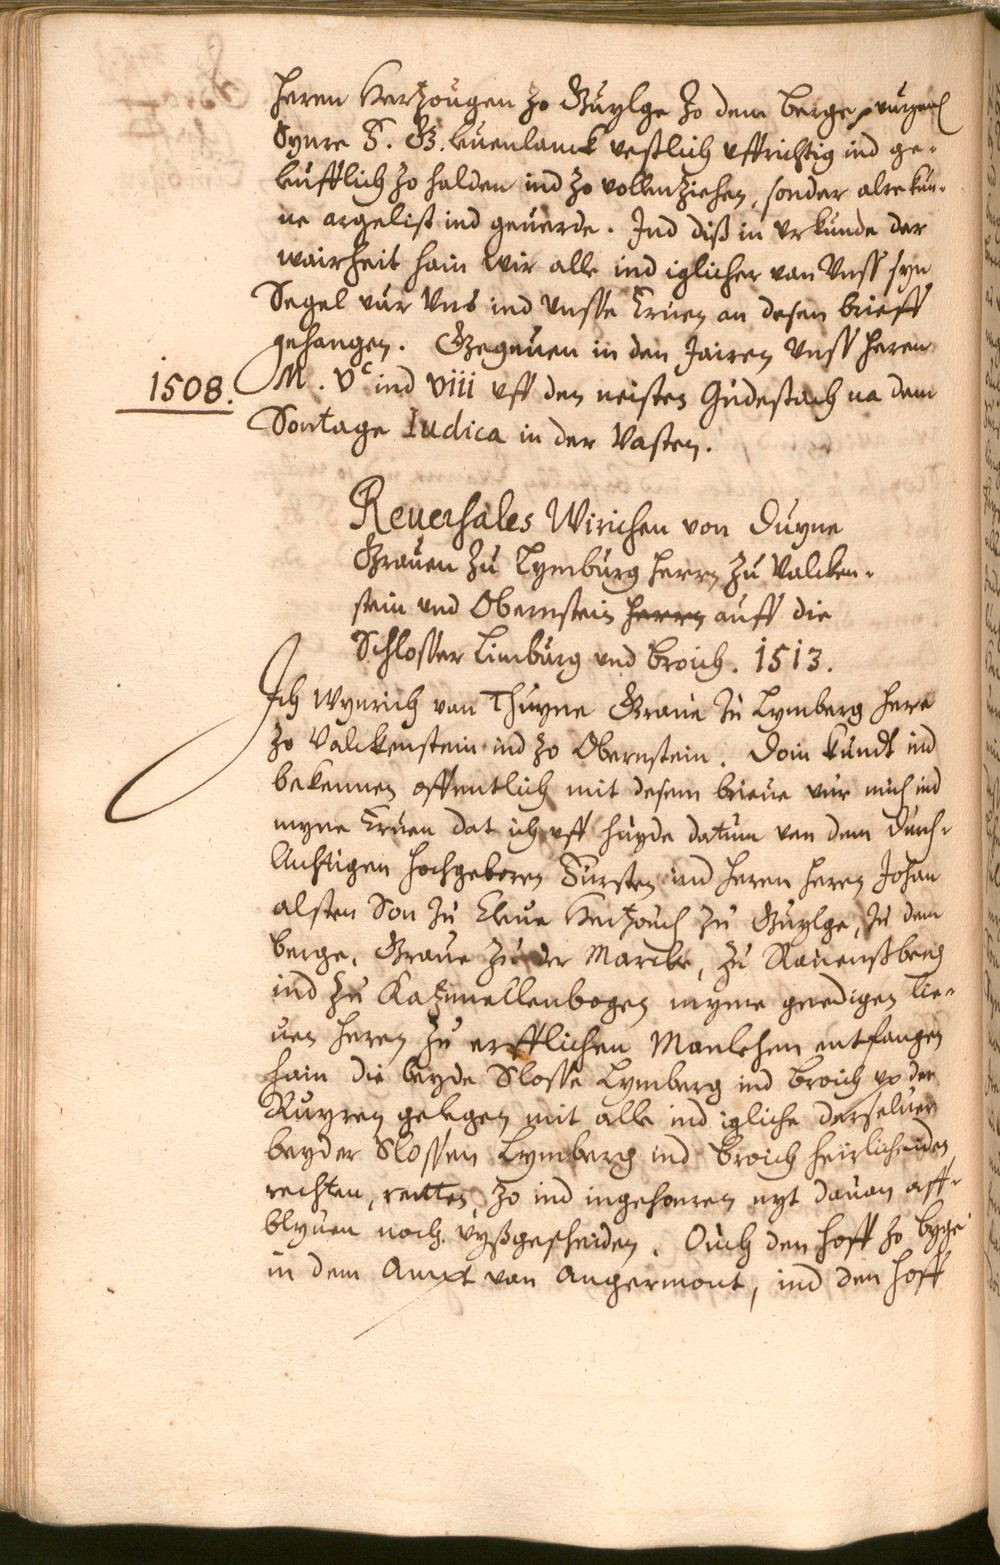 heren Hertzougen zo Guylge zo dem Berge, vurgen.
Synre F. G. leuenlanck vestlich vffrichtig ind ge-
leufflich zo halden ind zo vollentziehen, sonder alrekun-
ne argelist ind geuerde. Ind diß in vrkunde der
wairheit hain wir alle ind iglicher van vnss syn
Segel vur vns ind vnsse Eruen an desen brieff
gehangen. Gegeuen in den Jairen vnss heren
1508. M. Vc ind viii vff den neisten Gudestach na dem
Sontage Iudica in der Vasten.
Reuersales Wirichen von Duyne
Grauen zu Lymburg herrn zu Valcken-
stein und Obernstein herrn auff die
Schlosser Limburg und Broich. 1513.
Ich Wynrich van Thuyne Graue zu Lymberg here
zo Valckenstein ind zo Obernstein. Doin kundt ind
bekennen offentlich mit desem brieue vur mich ind
myne Eruen dat ich vff huyde datum van dem durch-
luchtigen hochgeboren Fursten ind heren heren Johan
alsten Son zu Cleue Hertzouch zu Guylge, zu dem
Berge, Graue zu der Marcke, zu Rauenssberg
ind zu Katzenellenbogen myme genedigen lie-
uen heren zu erfflichen Manlehen entfangen
hain die beyde Slosse Lymberg ind Broich vp der
Ruyren gelegen mit alle ind igliche derseluer
beyder Slossen Lymberg ind Broich heirlicheiden,
rechten, rentten, zo ind ingehoeren nyt dauan aff-
blyuen noch vyßgescheiden. Ouch den hoff zo Byge
in dem Ampt van Angermont, ind den hoff